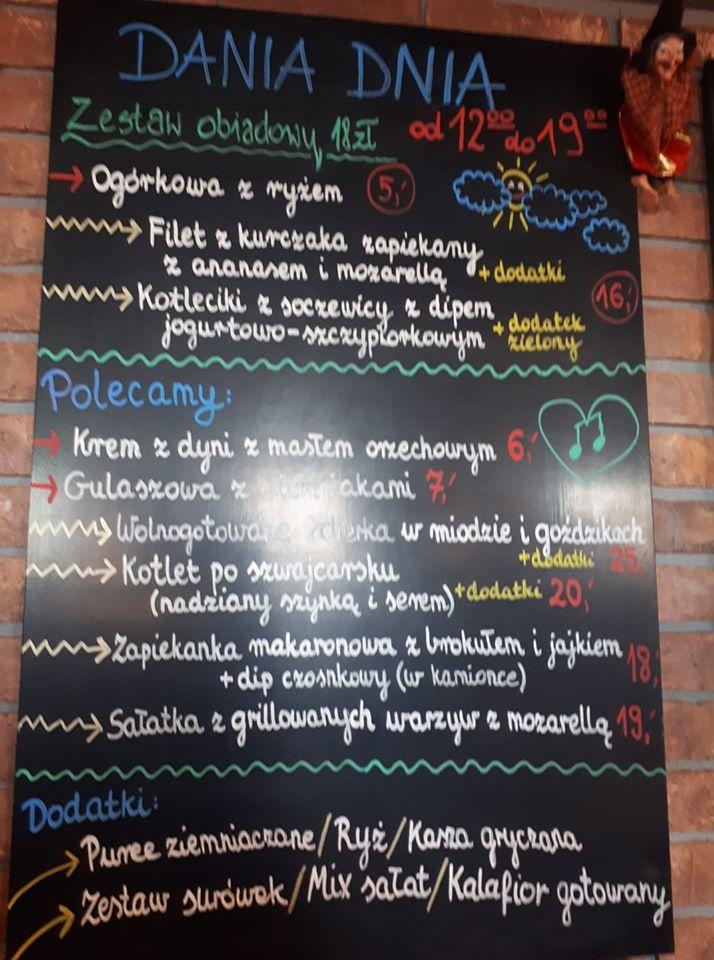 DANIA DNIA
Zestaw obiadowy, 18 zł od 12⁰⁰ do 19⁰⁰
Ogórkowa z ryżem 5,-
Filet z kurczaka zapiekany
z ananasem i mozarellą + dodatki
Kotleciki z soczewicy z dipem 16,-
jogurtowo-szczypiorkowym + dodatek
zielony
Polecamy:
Krem z dyni z masłem orzechowym 6,-
Gulaszowa z ziemniakami 7,-
Wolnogotowane żeberka w miodzie i goździkach
+dodatki 25,-
Kotlet po szwajcarsku
(nadziany szynką i serem) +dodatki 20,-
Zapiekanka makaronowa z brokułem i jajkiem 18,-
+ dip czosnkowy (w kamionce)
Sałatka z grillowanych warzyw z mozarellą 19,-
Dodatki:
Puree ziemniaczane/Ryż/Kasza gryczana
Zestaw surówek/Mix sałat/Kalafior gotowany